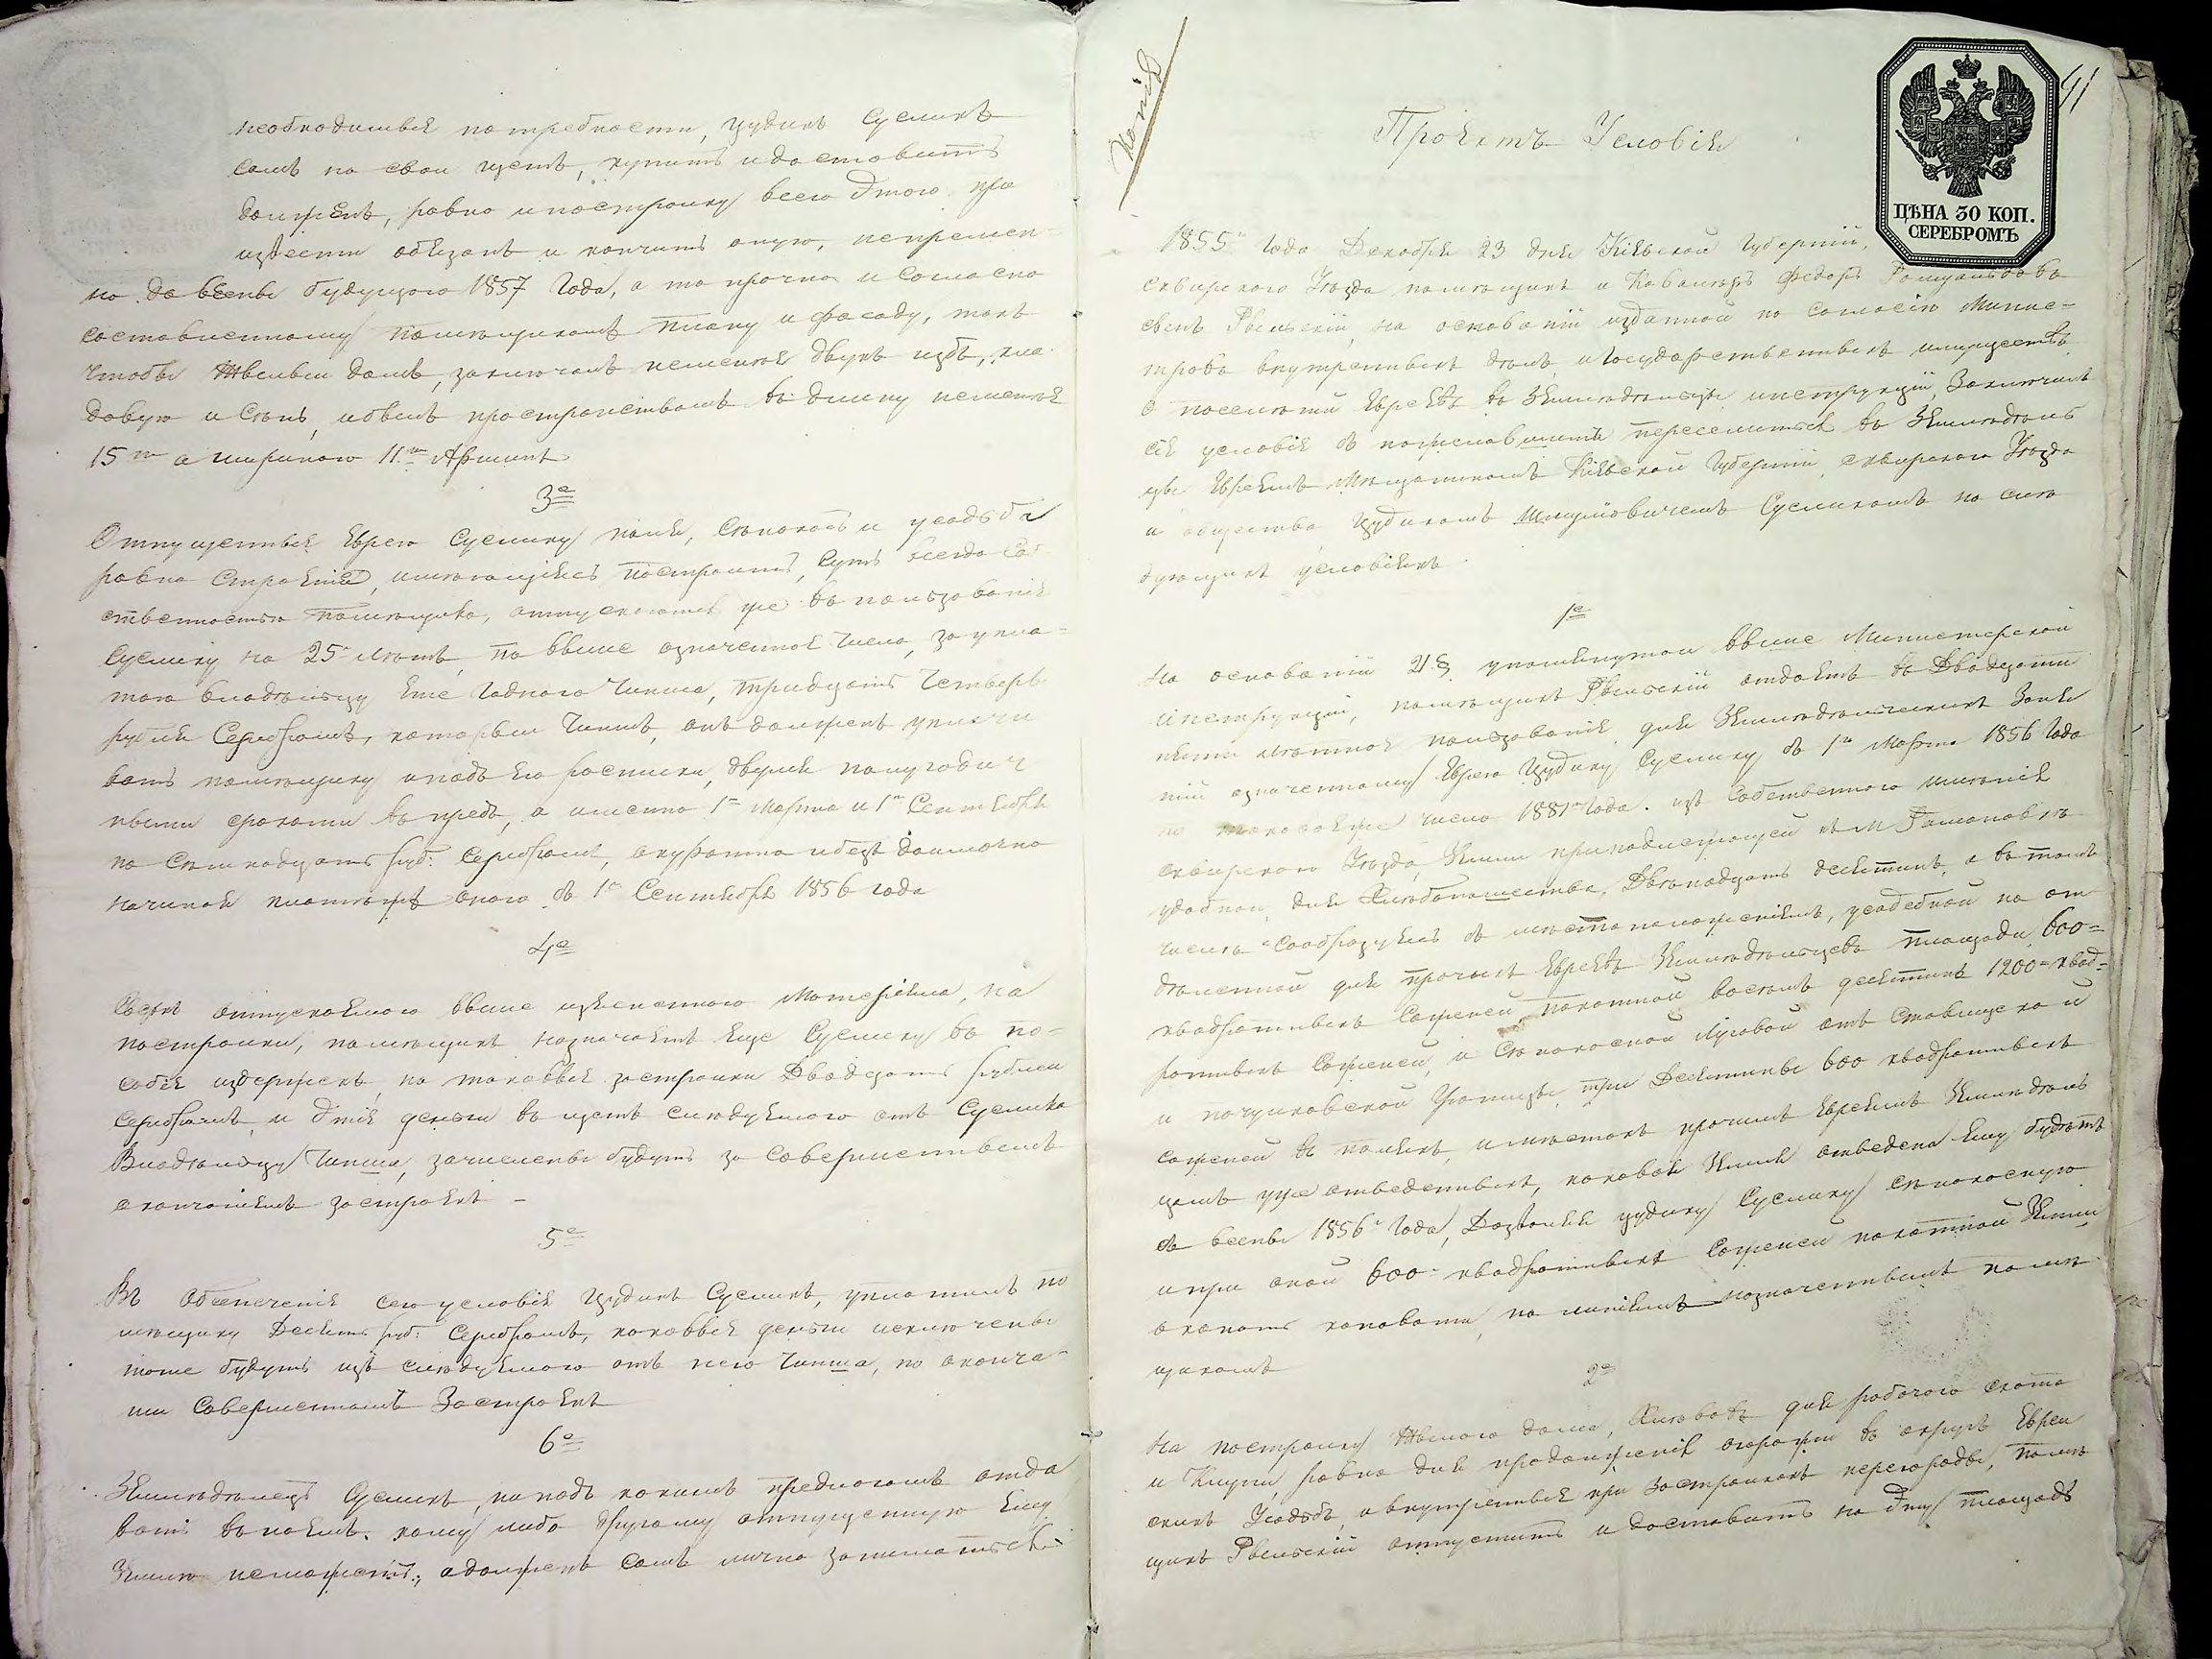 необходимыя потребности, Іудикъ Сусликъ
самъ на свой щетъ, купитъ и доставитъ
долженъ, равно и постройку всего этого про
извести обязанъ и кончитъ оную, непремен-
но до весны будущаго 1857 года, а то прочно и согласно
составленному помѣщикомъ плану и фасаду, такъ
чтобы жилый домъ, заключалъ неменѣе двухъ избъ, кла
довую и сѣнь, и былъ пространствомъ въ длину неменѣе
15ти а шириною 11ти Аршинъ
3е
Отпущенныя Еврею Суслику поля, сѣнокосъ и усадьба
равно строенія, имѣющіяся построитъ, суть всегда соб
ственностью помѣщика, отпускаются же въ пользованіе
Суслику на 25ть лѣтъ по выше означенное число, за упла-
тою владѣльцу еже годнаго чинша, тридцать четыре
рубля серебромъ, который чиншъ, онъ долженъ уплачи
вать помѣщику и подъ его росписки, двумя полугодич
ными сроками въ предъ, а именно 1го Марта и 1го Сентября
по семнадцать руб: серебромъ, акуратно и безъ доимочно
начиная платежъ оного съ 1го Сентября 1856 года
4е
Сверхъ отпускаемаго выше изъясненнаго матеріяла, на
постройки, помѣщикъ назначаетъ еще Суслику въ по-
собіе издержекъ, на таковые застройки двадцать рублей
серебромъ, и этѣ деньги въ щетъ слѣдуемаго отъ Суслика
Владѣльцу чинша, зачислены будутъ за совершеннымъ
окончаніемъ застроекъ –
5е
Въ обезпеченіе сего условія Іудикъ Сусликъ, уплотилъ по
мѣщику десять руб: серебромъ, каковые деньги исключены
тоже будутъ изъ слѣдуемаго отъ него чинша, по оконча-
ніи совершенномъ застроекъ
6е
Земледѣлецъ Сусликъ, ни подъ какимъ предлогомъ отда
вать въ наемъ, кому либо другому отпущенную ему
Землю неможетъ, а долженъ самъ лично заниматься
Копія
41
Проектъ Условія
ЦѢНА 30 КОП.
СЕРЕБРОМЪ
1855го года Декабря 23 дня Кіевской Губерніи,
Сквирского Уѣзда помѣщикъ и Кавалеръ Федоръ
сынъ Ржевскій, на основаніи изданной по согласію Минис-
тровъ внутреннихъ дѣлъ, и Государственныхъ имуществъ
о поселеніи Евреевъ въ Земледѣльцы инструкціи, Заключилъ
сіе условіе съ пожелавшимъ переселиться въ Земледѣль
цы Евреемъ Мѣщаниномъ Кіевской Губерніи, Сквирского Уѣзда
и общества Іудикомъ Суслikомъ на слѣ
дующихъ условіяхъ.
1е
На основаніи 21 § упомянутой выше Министерской
Инструкціи, помѣщикъ Ржевскій отдаетъ въ двадцати
пяти лѣтное пользованіе для Земледѣльческихъ Заня
тій означенному Еврею Іудику Суслику съ 1го Марта 1856 года
по таковое же число 1881го года. изъ собственного имѣнія
Сквирского Уѣзда, Земли принадлежащей къ м Романовкѣ
удобной, для Хлѣбопашества, Двѣнадцать десятинъ, а въ томъ
числѣ соображаясь съ мѣстоположеніемъ, усадебной на от
дѣленной для прочихъ Евреевъ Земледѣльцевъ площади 600=
квадратныхъ саженей, пахатной восемь десятинъ 1200=квад=
ратныхъ саженей, и сѣнокосной луговой отъ Ставищской
и границы три десятины 600 квадратныхъ
саженей въ поляхъ, и мѣстахъ прочимъ Евреямъ Земледѣль
цамъ уже отведенныхъ, каковая Земля отведена ему будетъ
съ весны 1856го года, Іудику Суслику сѣнокосную
и при оной 600= квадратныхъ саженей пахатной Земли
окопать канавами, по линіямъ назначеннымъ помѣ
щикомъ
2е
На постройку жилого дома, Хлѣвовъ для рабочего скота
и Клуни, равно для продолженія огорожи въ округъ Еврей
скихъ Усадебъ, а внутренныя при застройкахъ перегороды, помѣ
щикъ Ржевскій отпуститъ и доставитъ на эту площадь